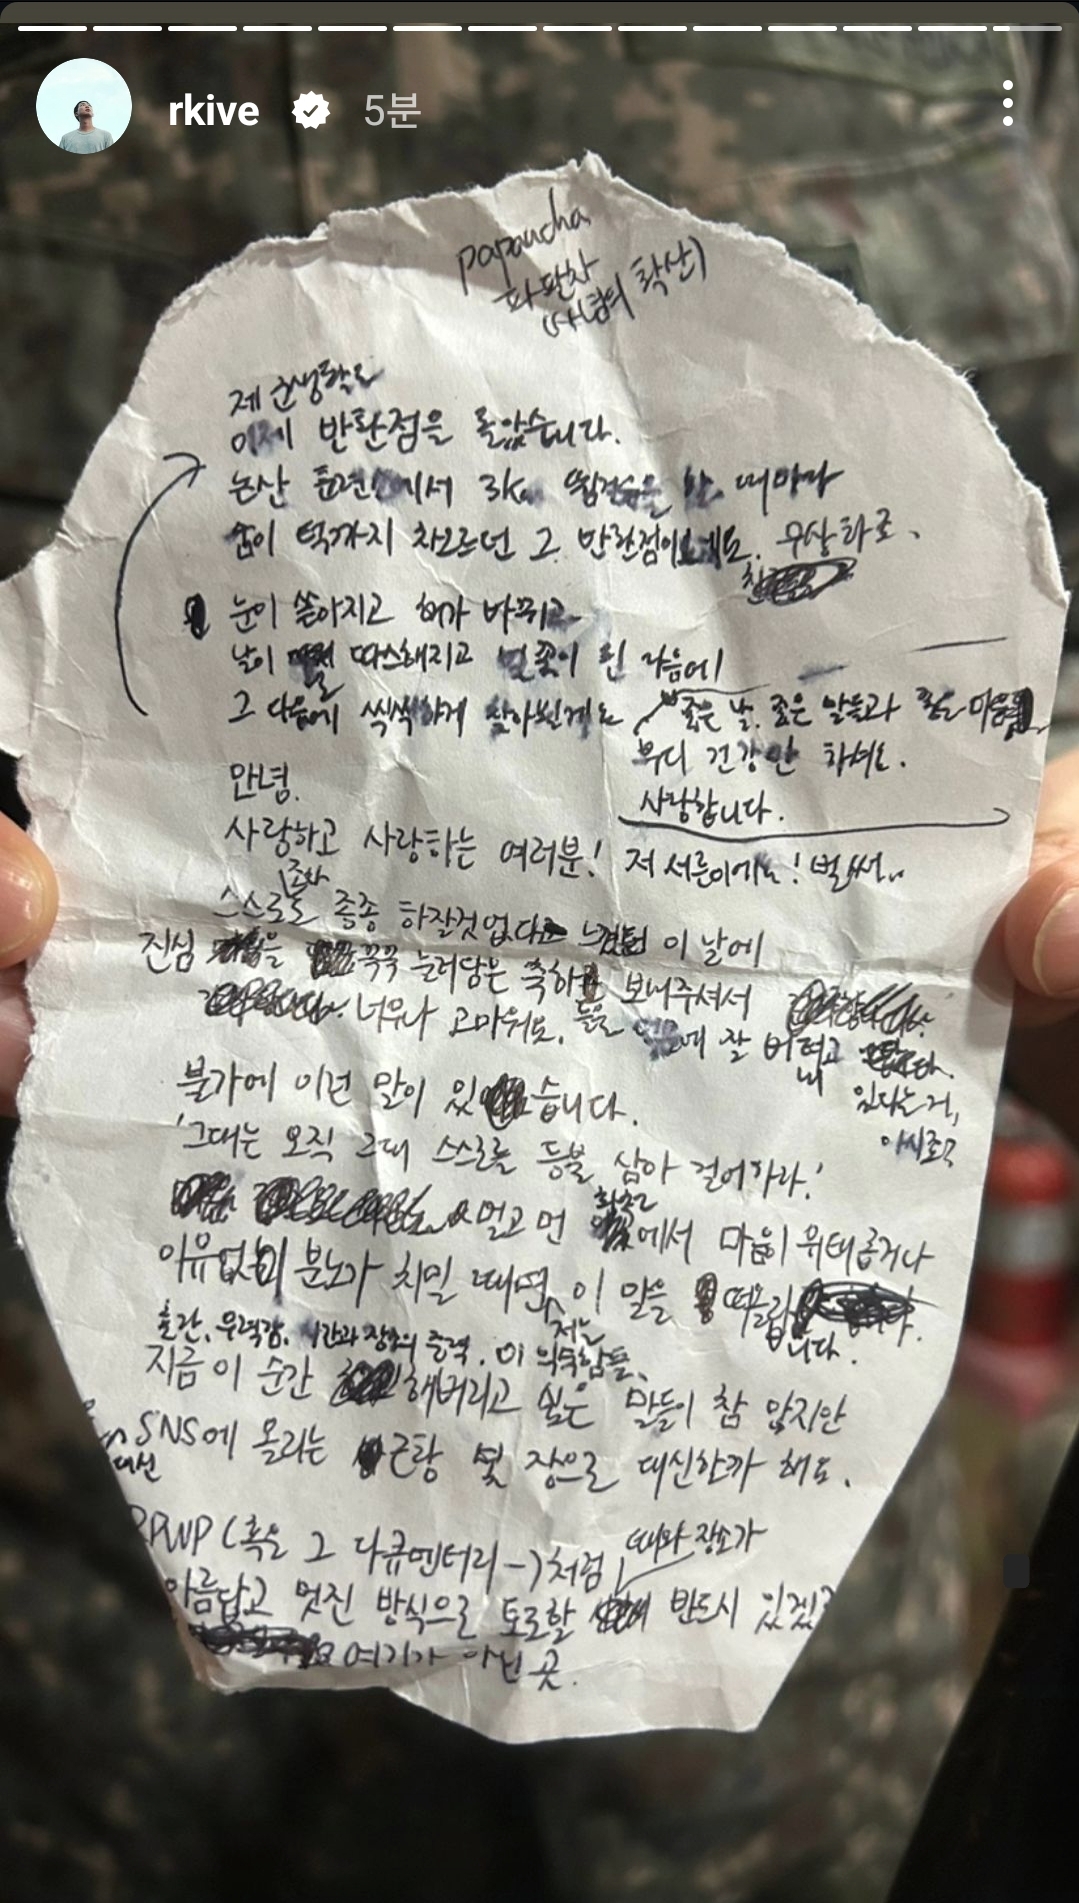 rkive 5분
papancha
파판차
(사념의 확산)
제 군생활도
이제 반환점을 돌았습니다.
논산 훈련소에서 3km 뜀걸음을 할 때마다
숨이 턱까지 차오르던 그 반환점이네요. 무상하죠.
눈이 쏟아지고 해가 바뀌고
날이 따스해지고 벚꽃이 핀 다음에
그 다음에 씩씩하게 찾아뵐게요
좋은 날, 좋은 말들과 좋은 마음
부디 건강만 하셔요.
사랑합니다.
안녕.
사랑하고 사랑하는 여러분! 저 서른이에요! 벌써..
조차
스스로 종종 하잘것없다 느꼈던 이 날에
진심을 꾹꾹 눌러담은 축하 보내주셔서
너무나 고마워요. 늘 잘 버텨내고
있다는 거,
아시죠?
불가에 이런 말이 있습니다.
'그대는 오직 그대 스스로를 등불 삼아 걸어가라.'
멀고 먼 화촌에서 마음이 위태롭거나
이유없이 분노가 치밀 때면, 저는 이 말을 떠올립니다.
혼란, 무력감, 시간과 장소의 중력. 이 의숙함들.
지금 이 순간 해버리고 싶은 말들이 참 많지만
SNS에 올리는 근황 몇 장으로 대신할까 해요.
대신
RPWP (혹은 그 다큐멘터리-)처럼 때와 장소가
아름답고 멋진 방식으로 토로할 반드시 있겠죠
여기가 아닌 곳.